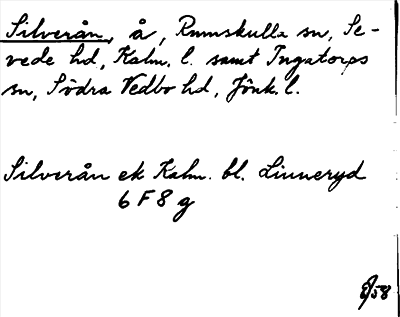 Silverån, å, Rumskulla sn, Se-
vede hd, Kalm. l. samt Ingatorps
sn, Södra Vedbo hd, Jönk. l.
Silverån ek Kalm. bl. Linneryd
6 F 8 g
/58